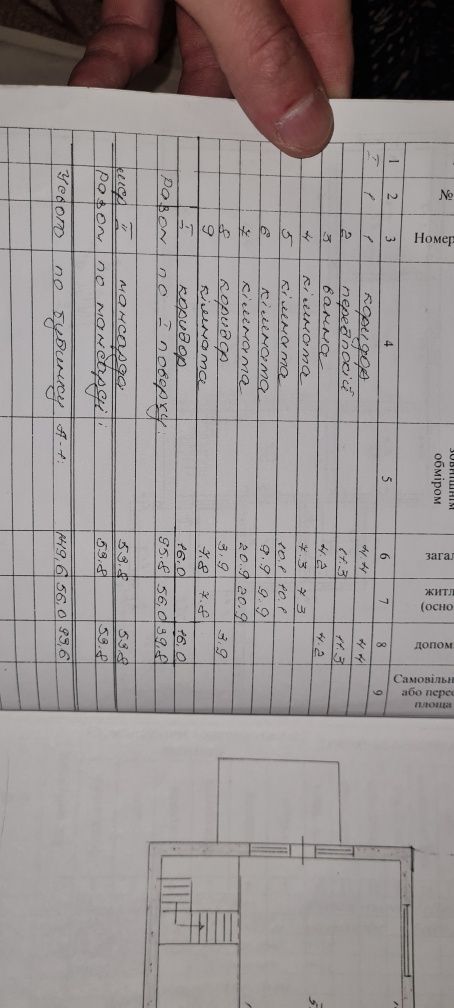 № Номер обміром загал житл (осно допом Самовільн
площа
1 2 3 4 5 6 7 8 9
I 1 1 коридор 4.4 4.4
2 передпокій 11.3 11.3
3 ванна 4.2 4.2
4 кімната 7.3 7.3
5 кімната 10.1 10.1
6 кімната 9.9 9.9
7 кімната 20.9 20.9
8 коридор 3.9 3.9
9 кімната 7.8 7.8
I коридор 16.0 16.0
Разом по I поверху: 95.8 56.0 39.8
II мансарда 53.8 53.8
Разом по мансарді: 53.8 53.8
Усього по будинку А-1: 149.6 56.0 93.6